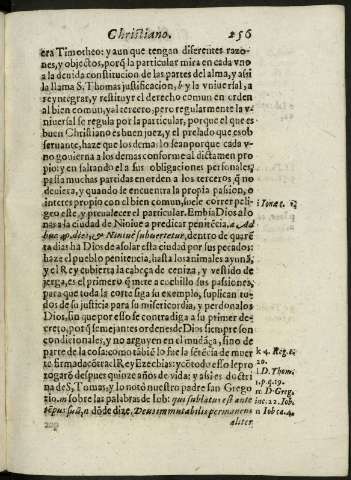 Christiano. 256
era Timotheo: y aun que tengan diferentes razo-
nes, y objectos, porq̃ la particular mira en cada vno
a la devida constitucion de las partes del alma, y assi
la llama S. Thomas justificacion, h y la vniversal, a
reyntegrar, y restituyr el derecho comun en orden
al bien comun, y al tercero; pero regularmente la v-
niversal se regula por la particular, porque el que es
buen Christiano es buen juez, y el prelado que es ob
servante, haze que los demas lo sean porque cada v-
no govierna a los demas conforme al dictamen pro
pio: y en faltando el a sus obligaciones personales,
passa muchas partidas en orden a los terceros q̃ no
deviera, y quando se encuentra la propia passion, o
interes propio con el bien comun, suele correr peli-
gro este, y prevalecer el particular. Embia Dios a Io
nas a la ciudad de Ninive a predicar penitẽcia, Ad
huc 40. dies, & Ninive subvertetur, dentro de quarẽ
ta dias ha Dios de asolar esta ciudad por sus pecados:
haze el pueblo penitencia, hasta los animales ayunã,
y el Rey cubierta la cabeça de ceniza, y vestido de
jerga, es el primero q̃ mete a cuchillo sus passiones,
para que toda la corte siga su exemplo, suplican to-
dos de su justicia para su misericordia, y perdonalos
Dios, sin que por esso se contradiga a su primer de-
creto, porq̃ semejantes ordenes de Dios siempre son
condicionales, y no arguyen en el mudãça, sino de
parte de la cosa: como tãbiẽ lo fue la sẽtẽcia de muer
te firmada cõtra el Rey Ezechias: y cõ todo esso le pro
rogarõ despues quinze años de vida: y assi es doctri
na de S. Tomas, y lo notò nuestro padre san Grego
rio. m sobre las palabras de Iob: qui sublatus est ante
tẽpus suũ, n dõde dize, Deus immutabilis permanens
aliter
i Ionæ c. 3
k 4. Reg. c.
20.
l D. Thom.
1. p. q. 19.
m D. Greg.
in c. 22. Iob.
n Iob c. 4.